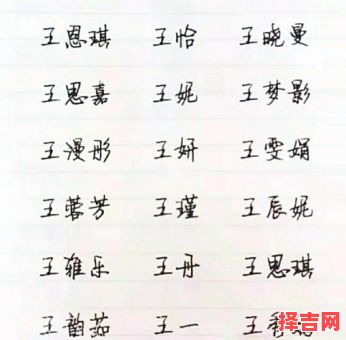 王恩琪 王怡 王晓曼
王思嘉 王妮 王梦影
王漫彤 王妍 王雯娟
王蓉芳 王瑾 王辰妮
王雅乐 王丹 王思琪
王韵茹 王一 王
择吉网